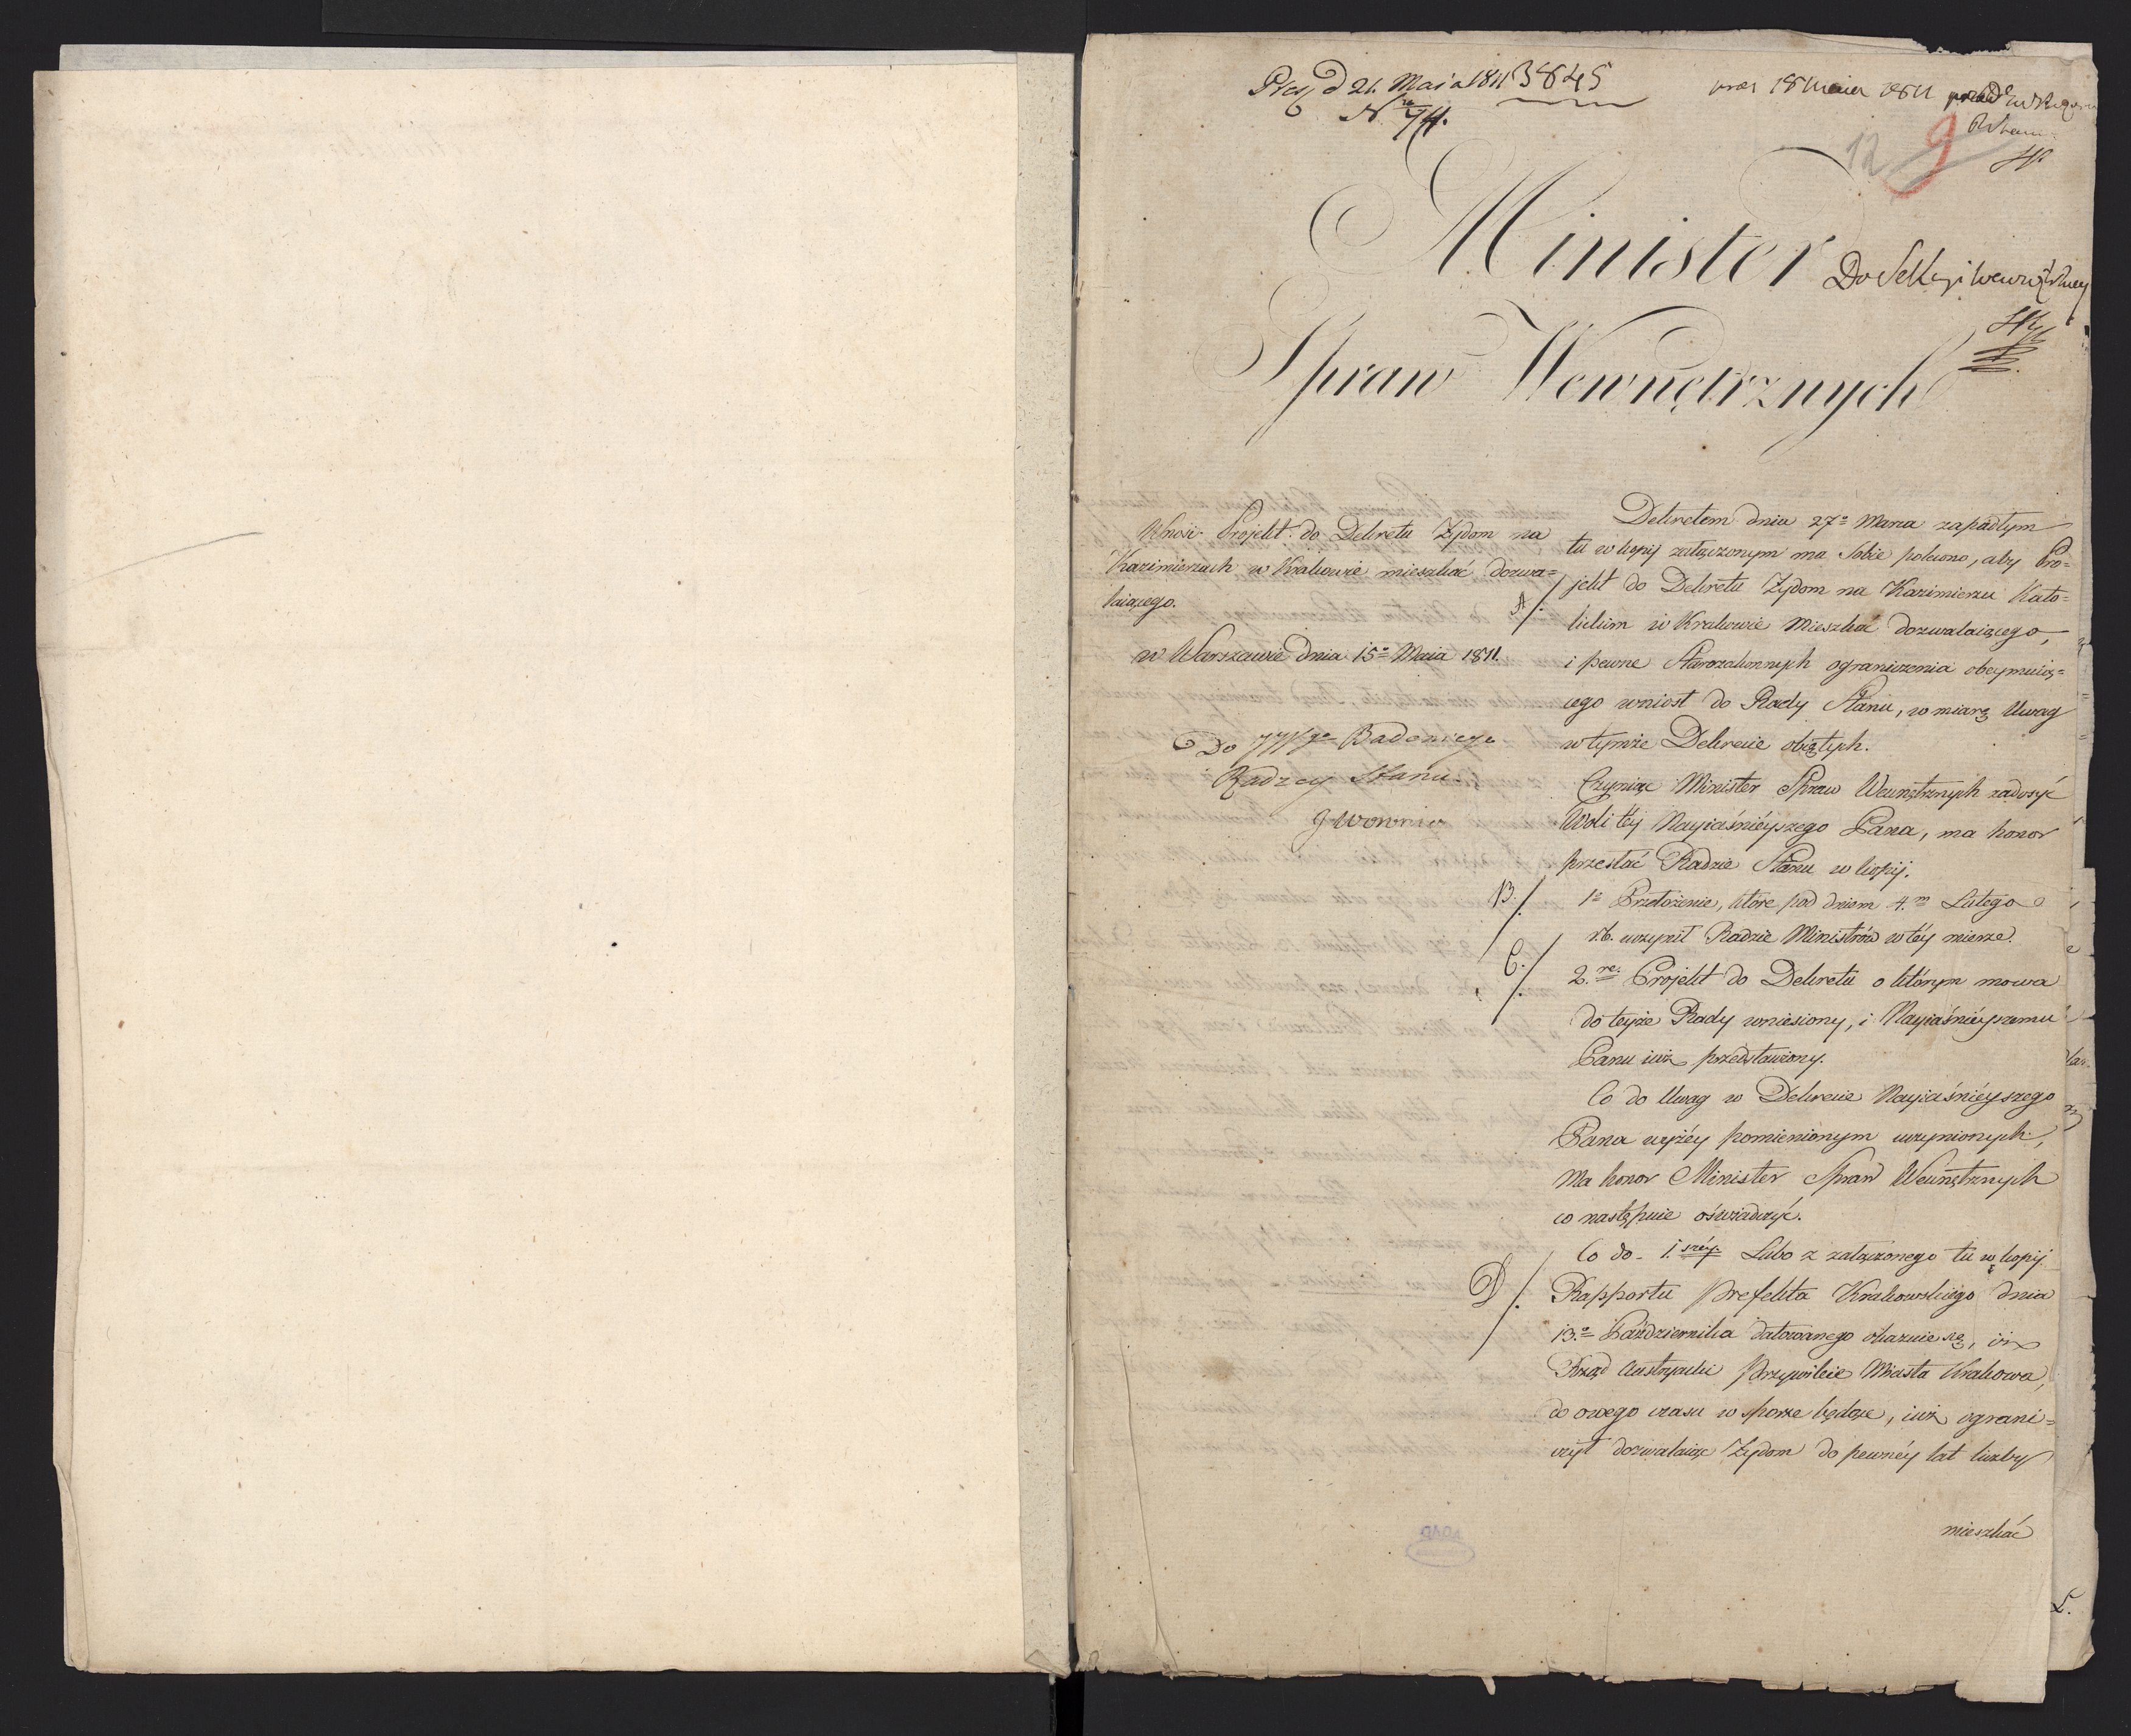 Pres. d 21. Maja 1811 3845
N 74.
pres 18 Maia 1811
12 9
Minister
Do Sekcyi Wewnętrzney
Spraw Wewnętrznych
Wnosi Projekt do Dekretu Żydom na
Kazimierzach w Krakowie mieszkać dozwa=
laiącego.
w Warszawie dnia 15º Maia 1811.
Do JW go Badeniego
Radzcy Stanu
Dekretem dnia 27º Marca zapadłym
tu w kopij załączonym ma sobie polecono, aby Pro=
A/. jekt do Dekretu Żydom na Kazimierzu Kato=
lickim w Krakowie mieszkać dozwalaiącego,
i pewne Starozakonnych ograniczenia obeymuią=
cego wniosł do Rady Stanu, w miarę Uwag
w tymże Dekrecie obiętych.
Czyniąc Minister Spraw Wewnętrznych zadosyć
Woli téy Nayiaśnieyszego Pana, ma honor
przesłać Radzie Stanu w kopij.
B/. 1º Przełożenie, które pod dniem 4.m Lutego
r.b. uczynił Radzie Ministrów w téy mierze.
C./. 2.re Projekt do Dekretu o którym mowa
do teyże Rady wniesiony, i Nayiaśnieyszemu
Panu iuż przedstawiony.
Co do Uwag w Dekrecie Nayiaśniéyszego
Pana wyżéy pomienionym uczynionych,
ma honor Minister Spraw Wewnętrznych
co następuie oświadczyć.
Co do 1.széy Lubo z załączonego tu w kopij
D/. Rapportu Prefekta Krakowskiego dnia
13.º Października datowanego okazuie się, iż
Rząd Austryacki Przywileie Miasta Krakowa,
do owego czasu w sporze będące, iuż ograni=
czył dozwalaiąc Żydom do pewnéy lat liczby
mieszkać